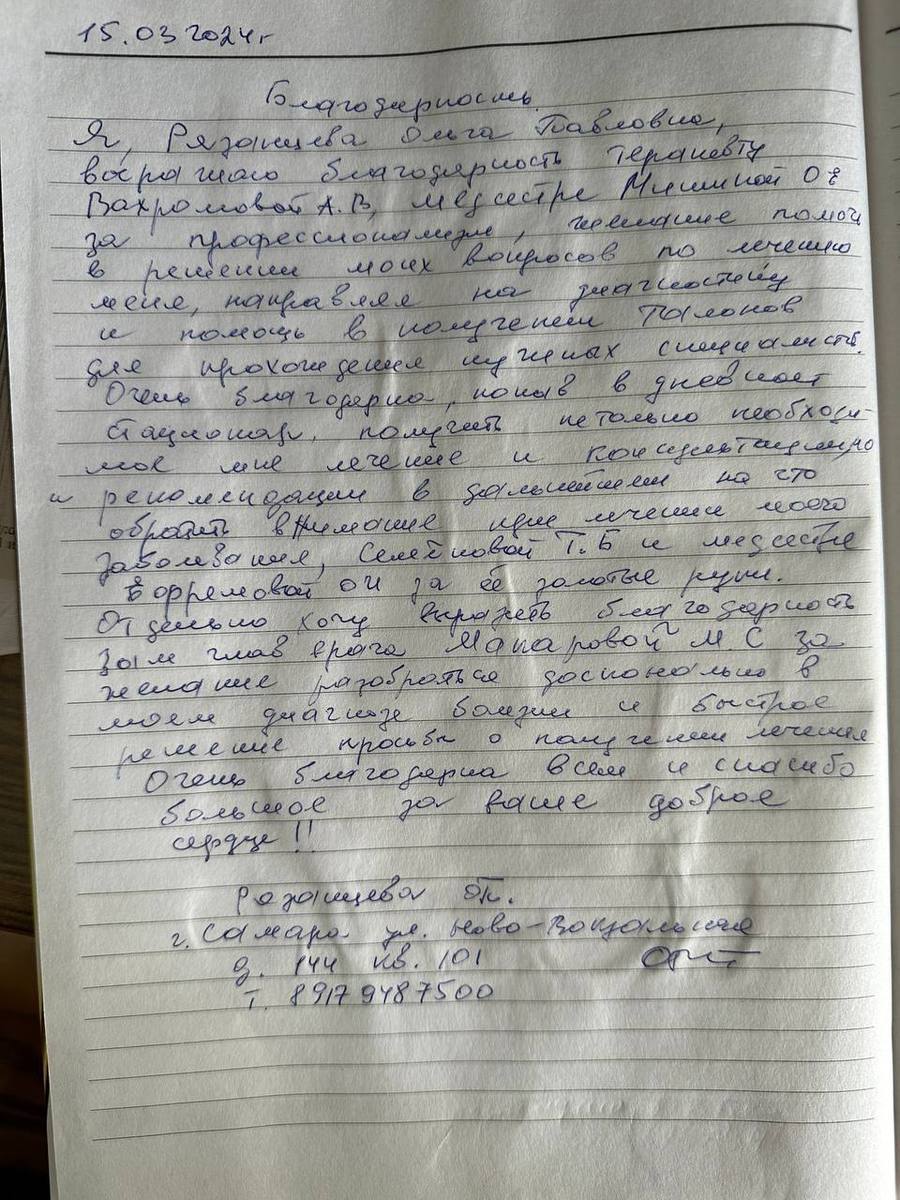 15.03 2024г
Благодарность.
Я, Рязанцева Ольга Павловна,
выражаю благодарность терапевту
Вахромовой А.В, медсестре Мишиной О Е
за профессионализм, желание помочь
в решении моих вопросов по лечению
меня, направляя на диагностику
и помощь в получении талонов
для прохождения нужных специалистов.
Очень благодарна, попав в дневной
стационар, получить нетолько необходи-
мое мне лечение и консультацию
и рекомендации в дальнейшем на что
обратить внимание при лечении моего
заболевания, Семейновой Т.Б и медсестре
ОН за её золотые руки.
Отдельно хочу выразить благодарность
зам глав врача Макаровой М.С за
желание разобраться досконально в
моем диагнозе болезни и быстрое
решение просьбы о получении лечения
Очень благодарна всем и спасибо
большое за ваше доброе
сердце!!
Рязанцева ОП.
г. Самара ул. Ново-Вокзальная
д. 144 кв. 101
т. 89179487500